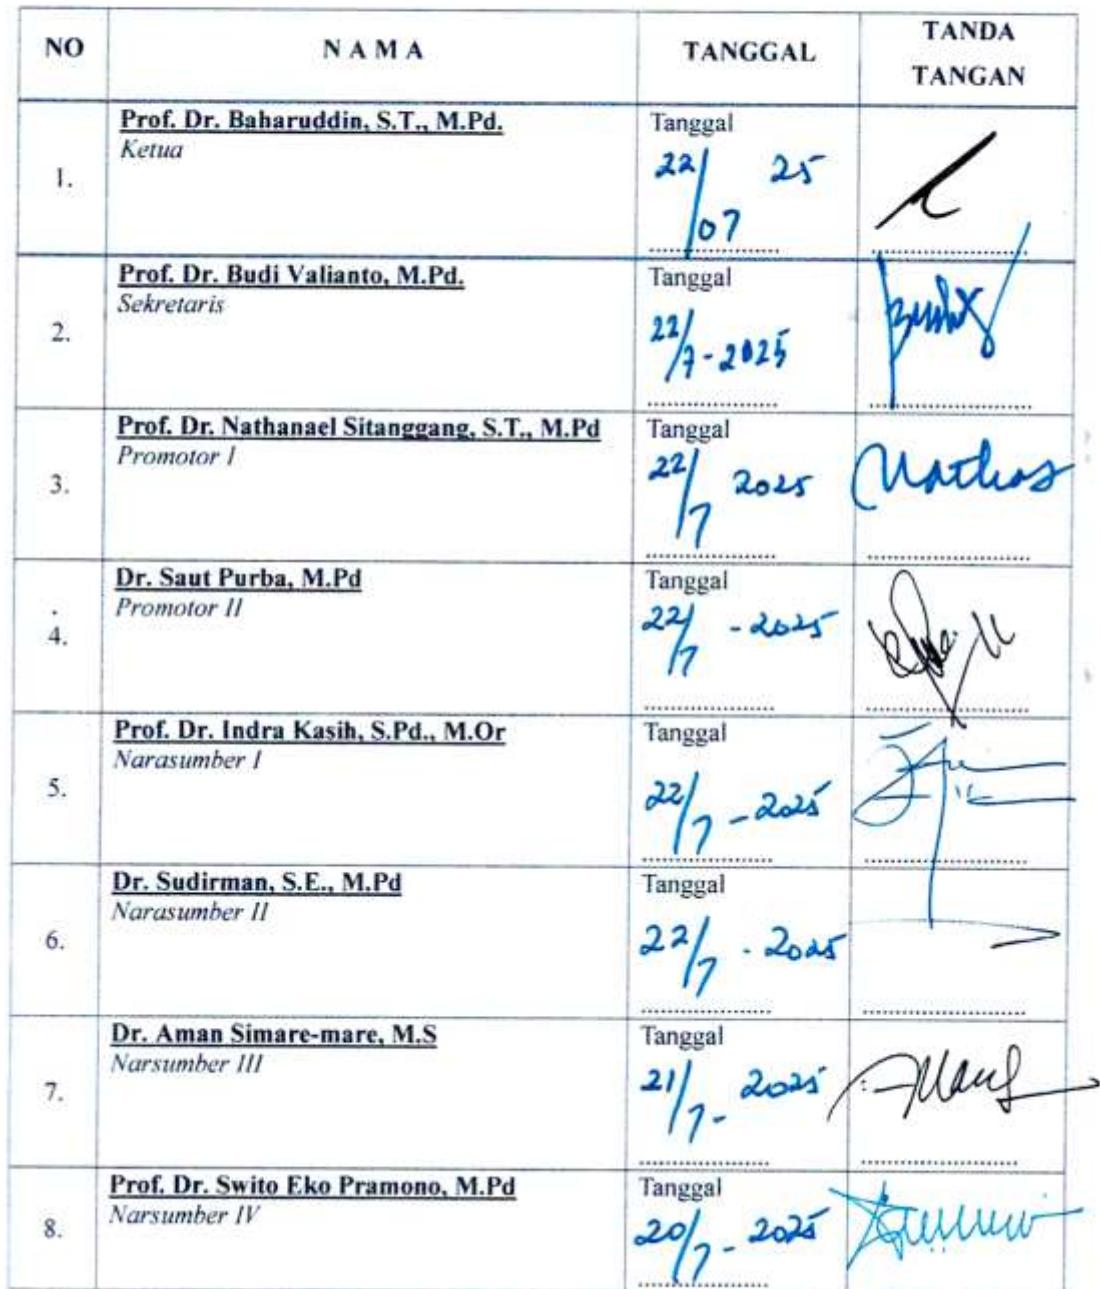 NO
N A M A
TANGGAL
TANDA
TANGAN
1.
Prof. Dr. Baharuddin, S.T., M.Pd.
Ketua
Tanggal
22/07 25
2.
Prof. Dr. Budi Valianto, M.Pd.
Sekretaris
Tanggal
22/7-2025
3.
Prof. Dr. Nathanael Sitanggang, S.T., M.Pd
Promotor I
Tanggal
22/7 2025
4.
Dr. Saut Purba, M.Pd
Promotor II
Tanggal
22/7 - 2025
5.
Prof. Dr. Indra Kasih, S.Pd., M.Or
Narasumber I
Tanggal
22/7 - 2025
6.
Dr. Sudirman, S.E., M.Pd
Narasumber II
Tanggal
22/7 - 2025
7.
Dr. Aman Simare-mare, M.S
Narsumber III
Tanggal
21/7 - 2025
8.
Prof. Dr. Swito Eko Pramono, M.Pd
Narsumber IV
Tanggal
20/7 - 2025